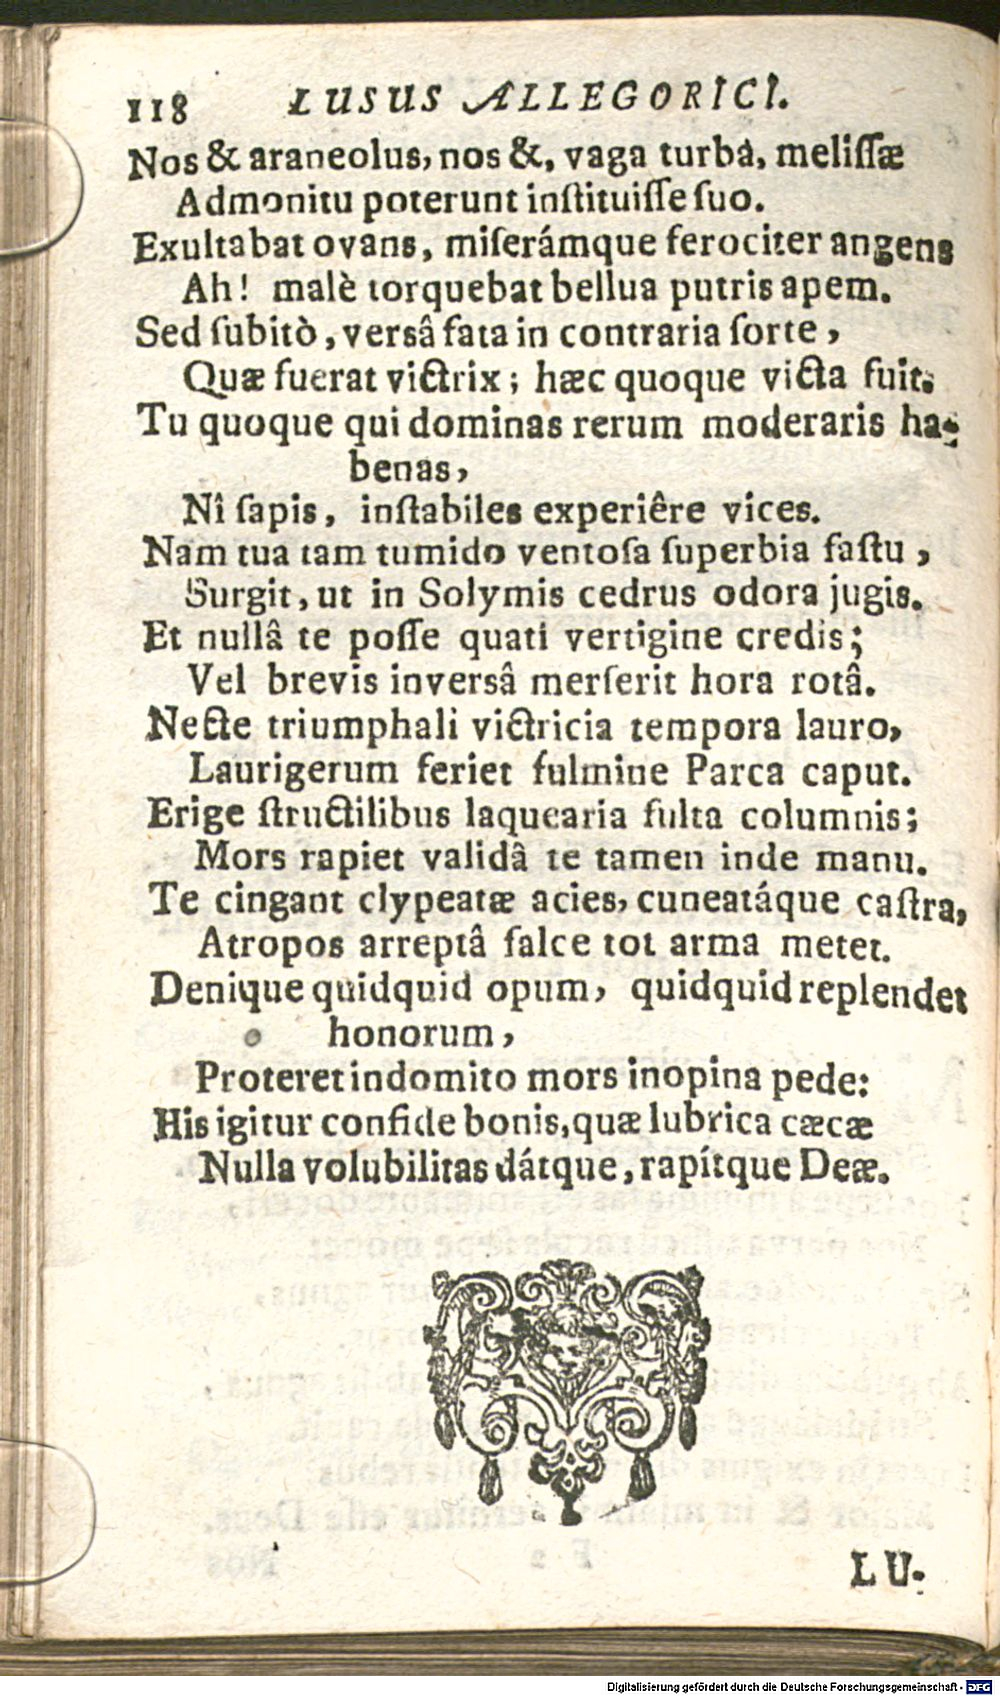 118 LUSUS ALLEGORICI.
Nos & araneolus, nos &, vaga turba, melissæ
Admonitu poterunt instituisse suo.
Exultabat ovans, miserámque ferociter angens
Ah! malè torquebat bellua putris apem.
Sed subitò, versâ fata in contraria sorte,
Quæ fuerat victrix; hæc quoque victa fuit.
Tu quoque qui dominas rerum moderaris ha-
benas,
Nî sapis, instabiles experiêre vices.
Nam tua tam tumido ventosa superbia fastu,
Surgit, ut in Solymis cedrus odora jugis.
Et nullâ te posse quati vertigine credis;
Vel brevis inversâ merserit hora rotâ.
Necte triumphali victricia tempora lauro,
Laurigerum feriet fulmine Parca caput.
Erige structilibus laquearia fulta columnis;
Mors rapiet validâ te tamen inde manu.
Te cingant clypeatæ acies, cuneatáque castra,
Atropos arreptâ falce tot arma metet.
Denique quidquid opum, quidquid replendet
honorum,
Proteret indomito mors inopina pede:
His igitur confide bonis, quæ lubrica cæcæ
Nulla volubilitas dátque, rapítque Deæ.
LU-
Digitalisierung gefördert durch die Deutsche Forschungsgemeinschaft - DFG